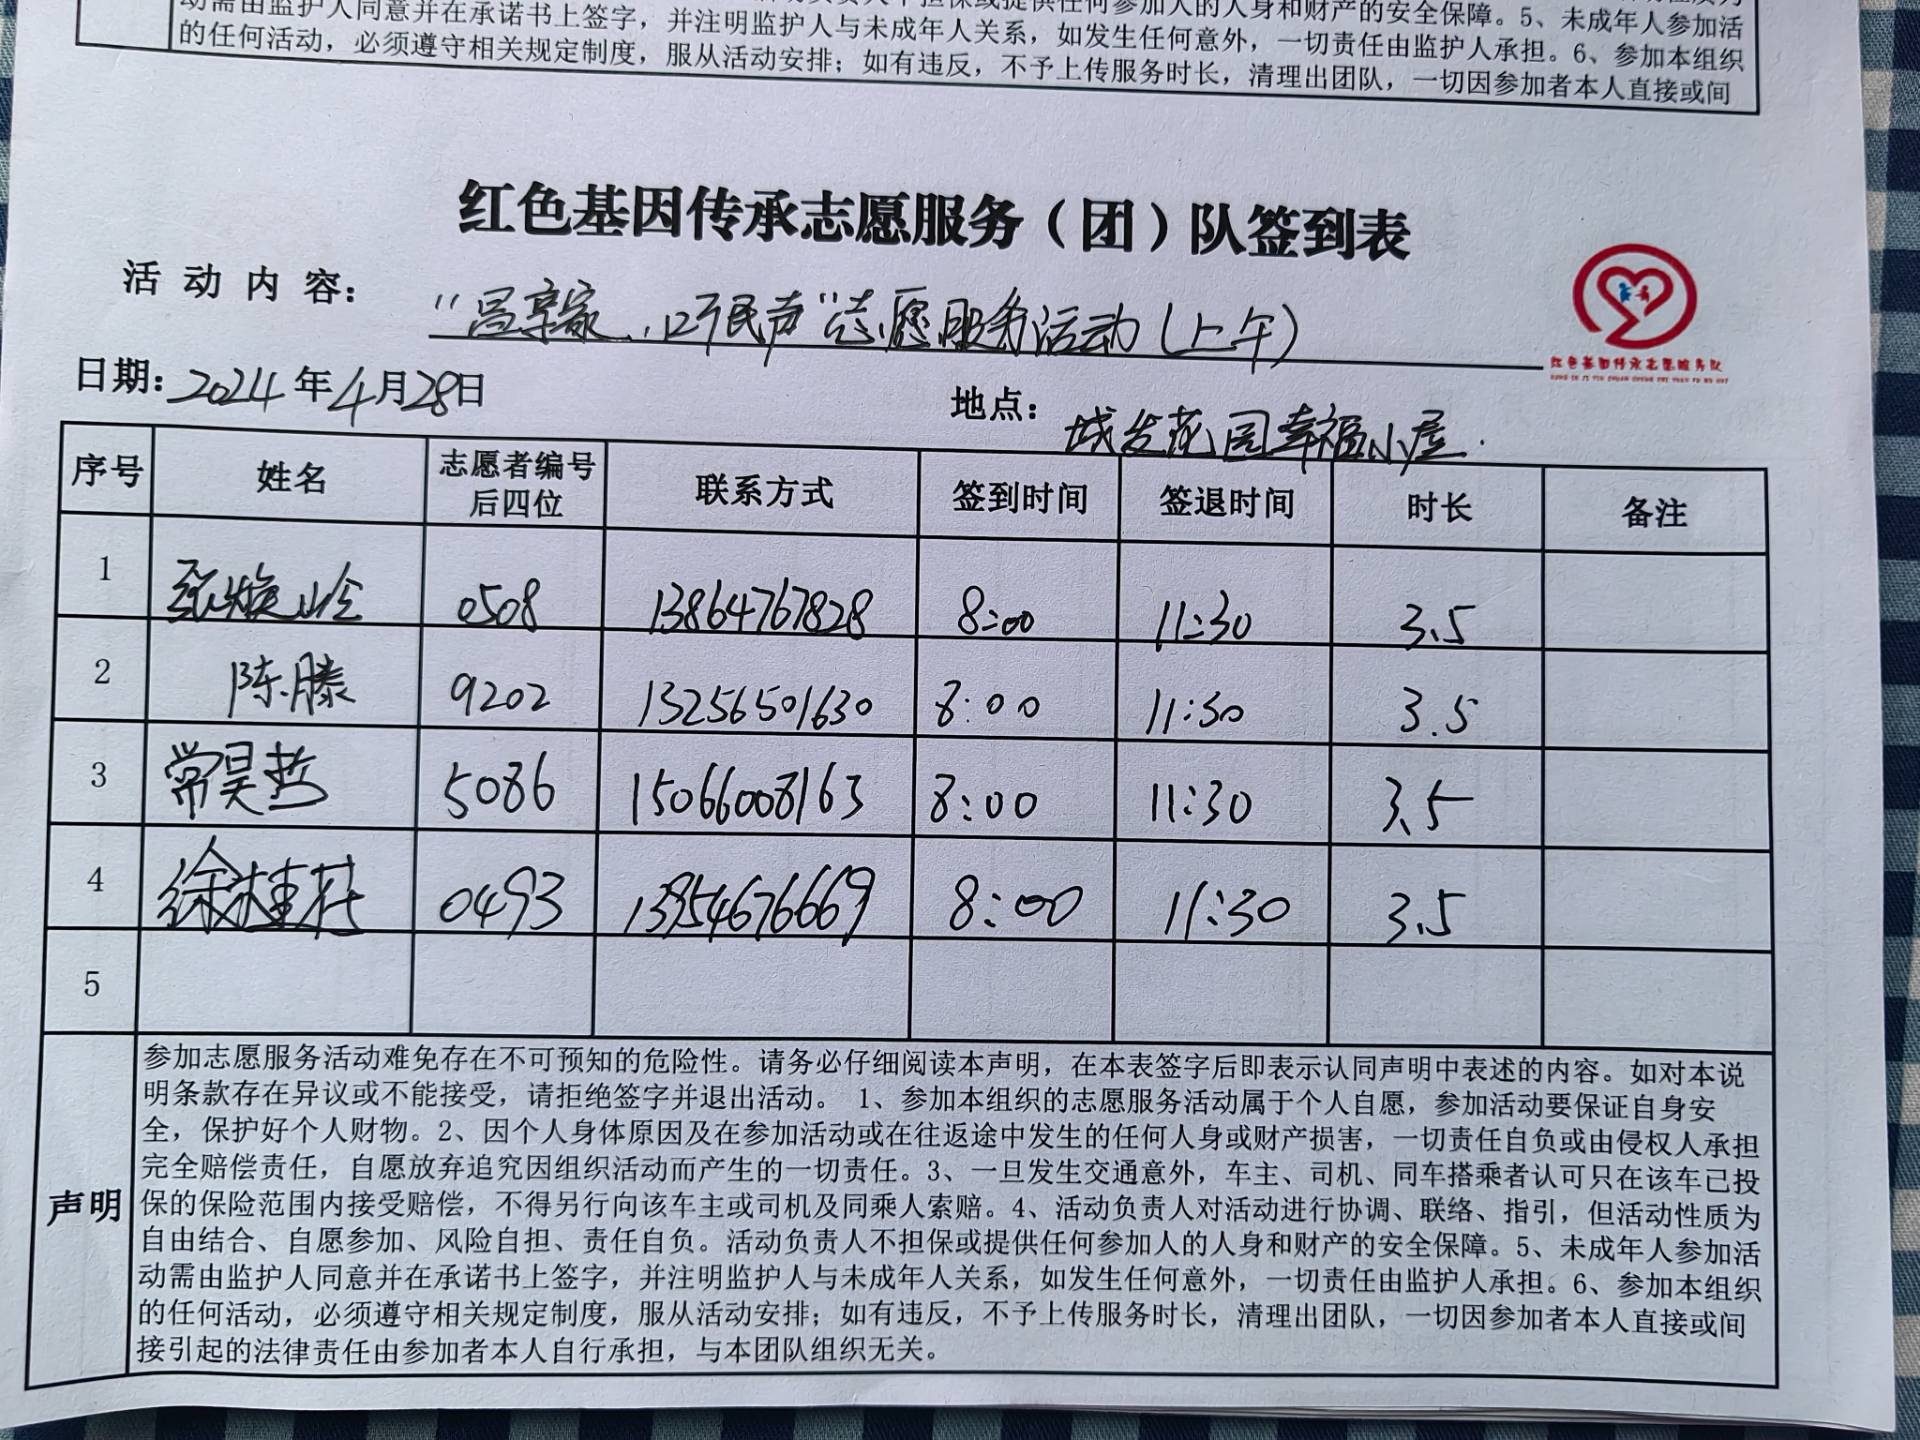 动需由监护人同意并在承诺书上签字，并注明监护人与未成年人关系，如发生任何意外，一切责任由监护人承担。6、参加本组织
的任何活动，必须遵守相关规定制度，服从活动安排；如有违反，不予上传服务时长，清理出团队，一切因参加者本人直接或间
红色基因传承志愿服务（团）队签到表
活动内容：
"吕享家，吁民声"志愿服务活动(上午)
红色基因传承志愿服务队
日期：2024年4月28日
地点：城发花园幸福小屋.
序号 姓名 志愿者编号后四位 联系方式 签到时间 签退时间 时长 备注
1 张焕岭 0508 13864767828 8:00 11:30 3.5
2 陈滕 9202 13256501630 8:00 11:30 3.5
3 常昊哲 5086 15066008163 8:00 11:30 3.5
4 徐桂花 0493 13954676669 8:00 11:30 3.5
5
声明
参加志愿服务活动难免存在不可预知的危险性。请务必仔细阅读本声明，在本表签字后即表示认同声明中表述的内容。如对本说
明条款存在异议或不能接受，请拒绝签字并退出活动。 1、参加本组织的志愿服务活动属于个人自愿，参加活动要保证自身安
全，保护好个人财物。2、因个人身体原因及在参加活动或在往返途中发生的任何人身或财产损害，一切责任自负或由侵权人承担
完全赔偿责任，自愿放弃追究因组织活动而产生的一切责任。3、一旦发生交通意外，车主、司机、同车搭乘者认可只在该车已投
保的保险范围内接受赔偿，不得另行向该车主或司机及同乘人索赔。4、活动负责人对活动进行协调、联络、指引，但活动性质为
自由结合、自愿参加、风险自担、责任自负。活动负责人不担保或提供任何参加人的人身和财产的安全保障。5、未成年人参加活
动需由监护人同意并在承诺书上签字，并注明监护人与未成年人关系，如发生任何意外，一切责任由监护人承担。6、参加本组织
的任何活动，必须遵守相关规定制度，服从活动安排；如有违反，不予上传服务时长，清理出团队，一切因参加者本人直接或间
接引起的法律责任由参加者本人自行承担，与本团队组织无关。